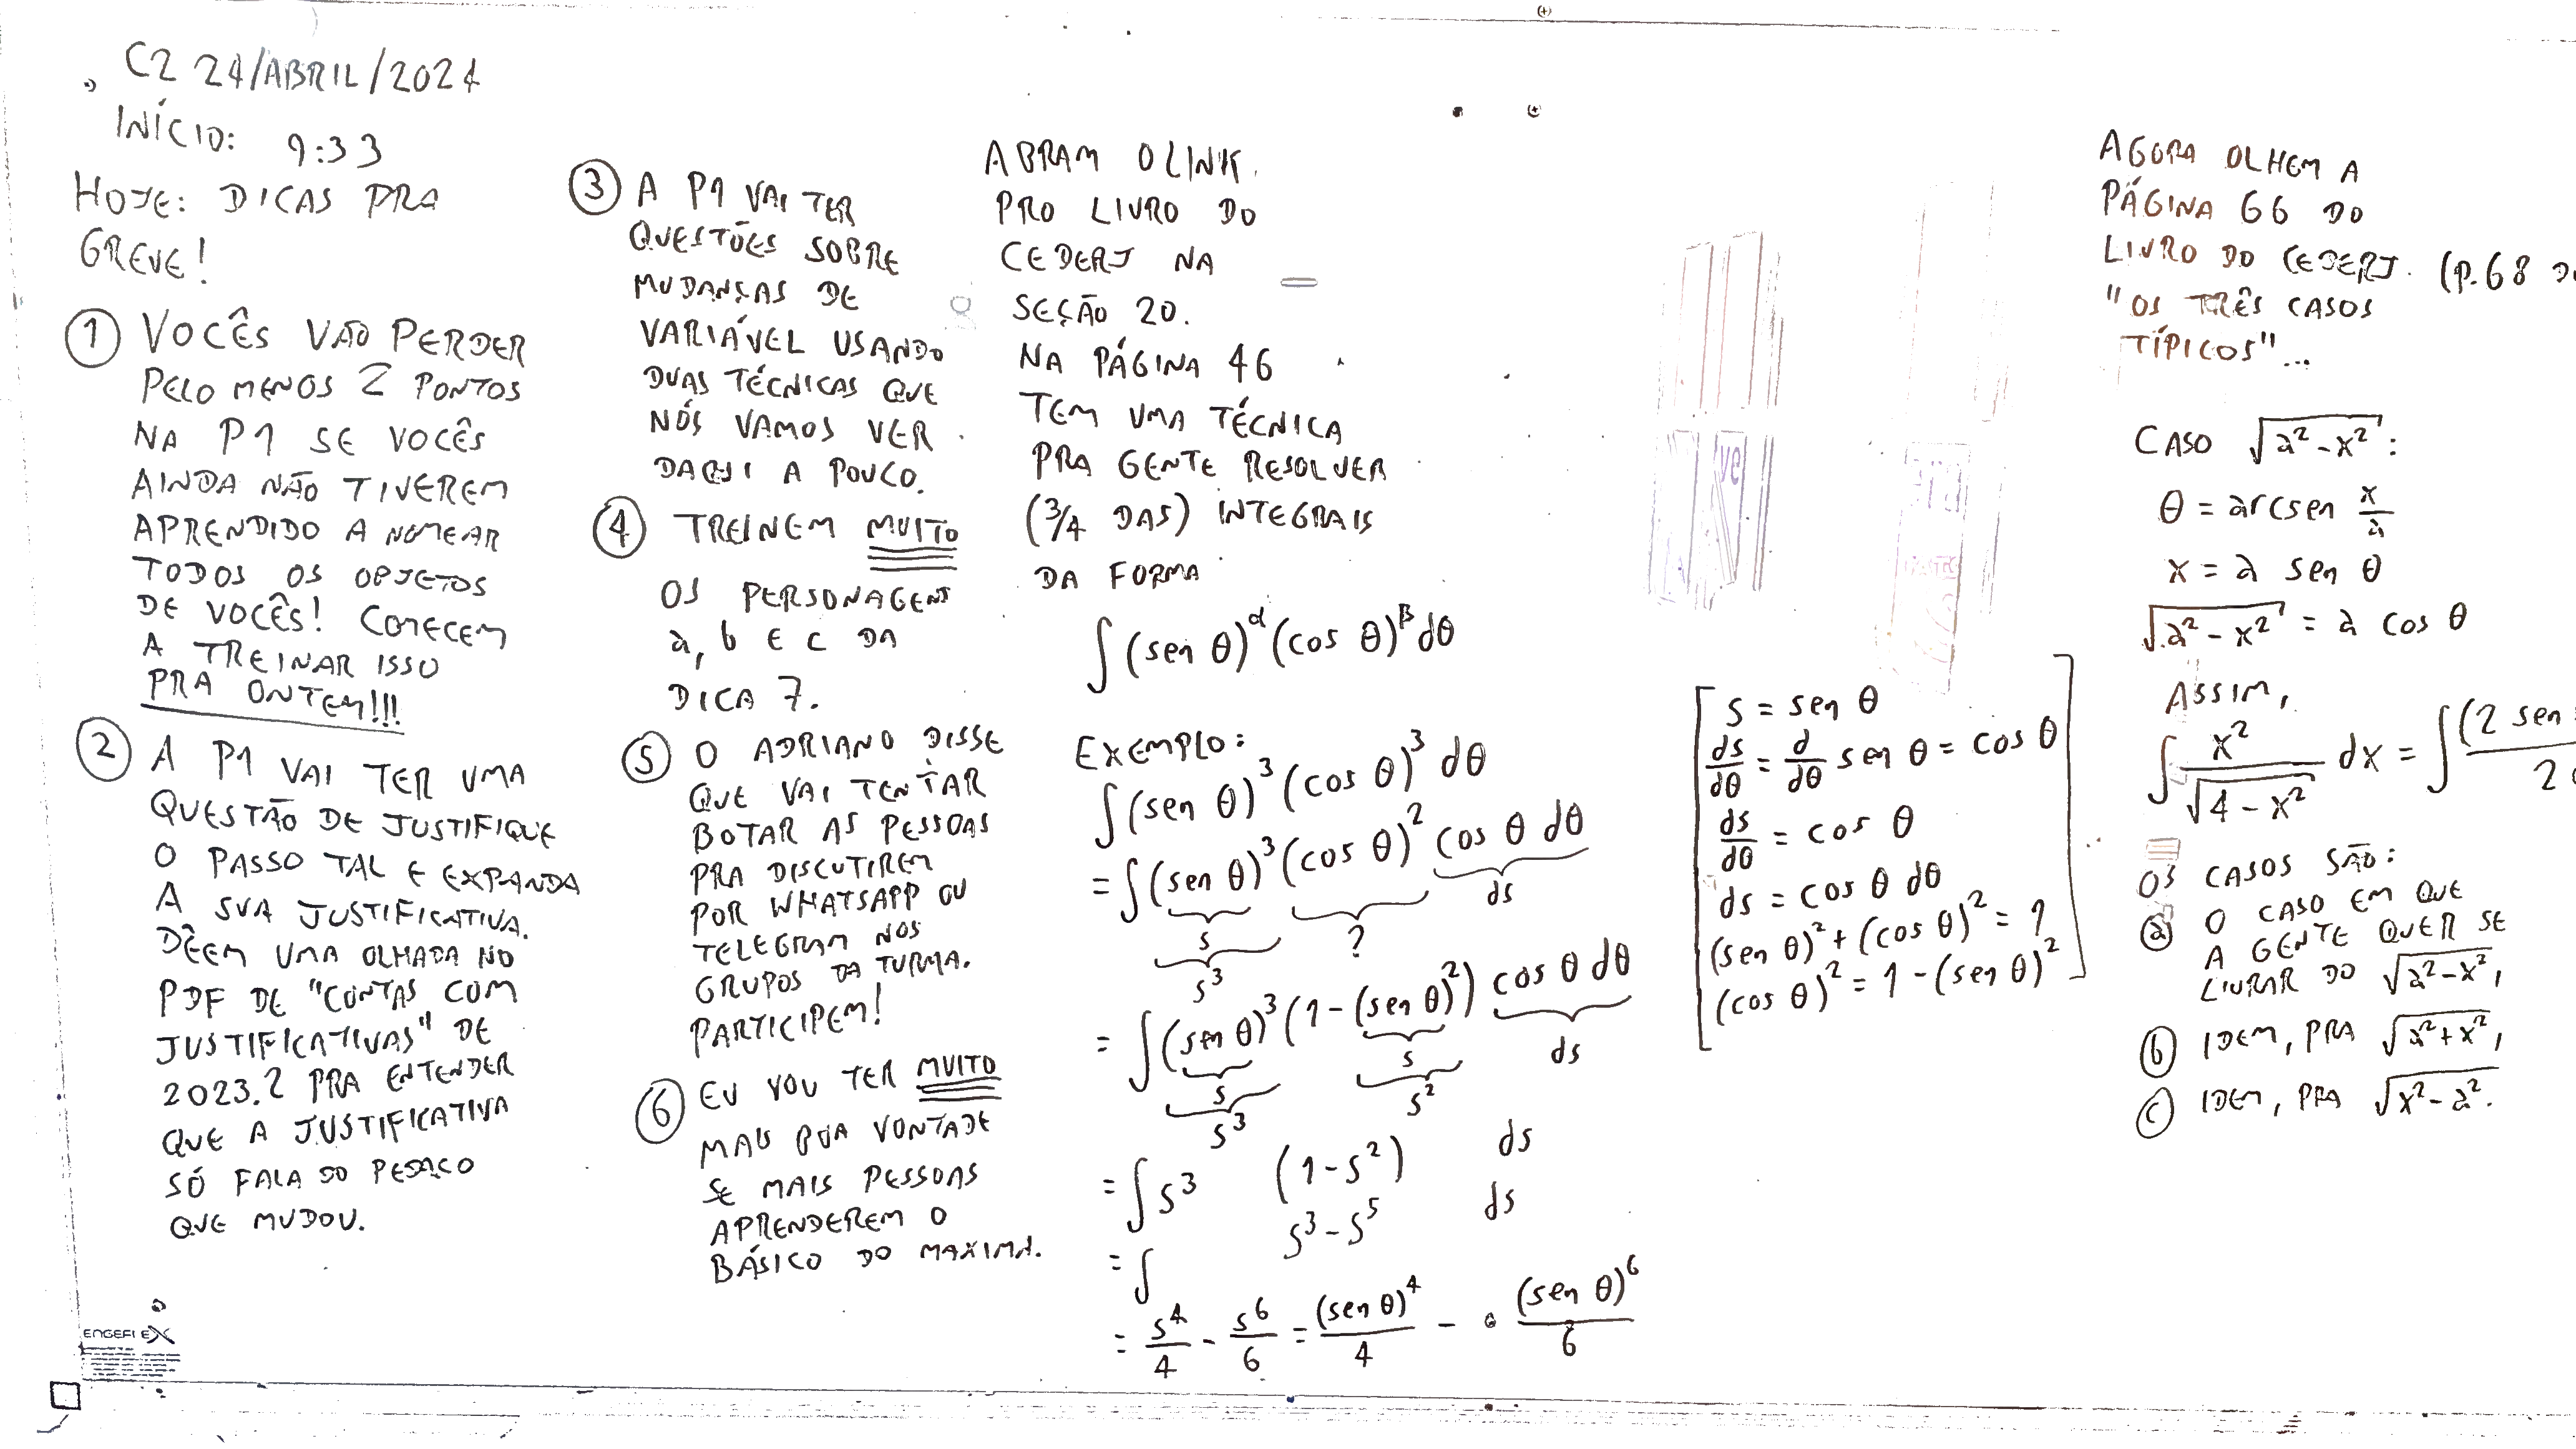 C2 24/ABRIL/2024
INÍCIO: 9:33
HOJE: DICAS PRA
GREVE!
① VOCÊS VÃO PERDER
PELO MENOS 2 PONTOS
NA P1 SE VOCÊS
AINDA NÃO TIVEREM
APRENDIDO A NOMEAR
TODOS OS OBJETOS
DE VOCÊS! COMECEM
A TREINAR ISSO
PRA ONTEM!!!
② A P1 VAI TER UMA
QUESTÃO DE JUSTIFIQUE
O PASSO TAL E EXPANDA
A SUA JUSTIFICATIVA.
DÊEM UMA OLHADA NO
PDF DE "CONTAS COM
JUSTIFICATIVAS" DE
2023.2 PRA ENTENDER
QUE A JUSTIFICATIVA
SÓ FALA DO PEDAÇO
QUE MUDOU.
③ A P1 VAI TER
QUESTÕES SOBRE
MUDANÇAS DE
VARIÁVEL USANDO
DUAS TÉCNICAS QUE
NÓS VAMOS VER
DAQUI A POUCO.
④ TREINEM MUITO
OS PERSONAGENS
a, b E c DA
DICA 7.
⑤ O ADRIANO DISSE
QUE VAI TENTAR
BOTAR AS PESSOAS
PRA DISCUTIREM
POR WHATSAPP OU
TELEGRAM NOS
GRUPOS DA TURMA.
PARTICIPEM!
⑥ EU VOU TER MUITO
MAIS BOA VONTADE
SE MAIS PESSOAS
APRENDEREM O
BÁSICO DO MAXIMA.
ABRAM O LINK
PRO LIVRO DO
CEDERJ NA
SEÇÃO 20.
NA PÁGINA 46
TEM UMA TÉCNICA
PRA GENTE RESOLVER
(3/4 DAS) INTEGRAIS
DA FORMA
∫ (sen θ)^α (cos θ)^β dθ
EXEMPLO:
∫ (sen θ)³ (cos θ)³ dθ
= ∫ (sen θ)³ (cos θ)² cos θ dθ
s ? ds
s³
= ∫ (sen θ)³ (1 - (sen θ)²) cos θ dθ
s s ds
s³ s²
= ∫ s³ (1 - s²) ds
= ∫ s³ - s⁵ ds
= s⁴/4 - s⁶/6 = (sen θ)⁴/4 - (sen θ)⁶/6
s = sen θ
ds/dθ = d/dθ sen θ = cos θ
ds/dθ = cos θ
ds = cos θ dθ
(sen θ)² + (cos θ)² = 1
(cos θ)² = 1 - (sen θ)²
AGORA OLHEM A
PÁGINA 66 DO
LIVRO DO CEDERJ. (p.68
"OS TRÊS CASOS
TÍPICOS"...
CASO √(a² - x²):
θ = arcsen x/a
x = a sen θ
√(a² - x²) = a cos θ
ASSIM,
∫ x²/√(4 - x²) dx = ∫ (2 sen / 2
OS CASOS SÃO:
ⓐ O CASO EM QUE
A GENTE QUER SE
LIVRAR DO √(a² - x²),
ⓑ IDEM, PRA √(a² + x²),
ⓒ IDEM, PRA √(x² - a²).
ENGEFLEX